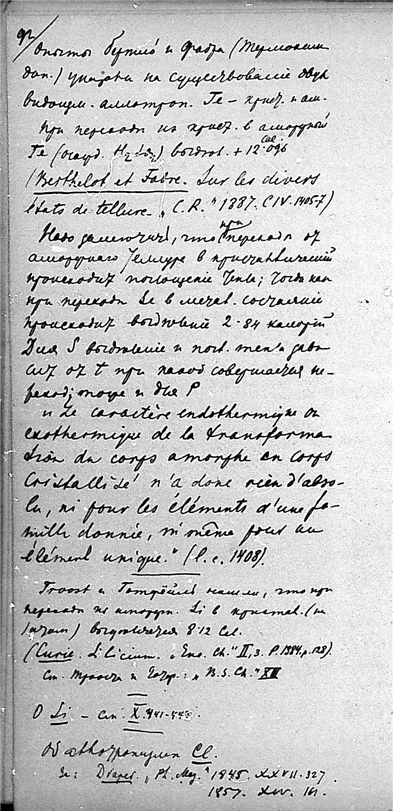 92/
Опыты Бертло и Фабра (Термохим.
дан.) указали на существование двух
видоизм. аллотроп. Te – крист. и ам.
При переходе из крист. в аморфный
Te (осажд. ) выдел. + 12·096 Cal
(Berthelot et Fabre. Sur les divers
états de tellure. „C. R.“ 1887. CIV. 1405-7)
Надо заметить, что при переходе от
аморфного Теллура в кристаллический
происходит поглощение тепла; тогда как
при переходе Se в металл. состояние
происходит выделение 2·84 калорий
Для S выделение и погл. тепла
от t при коей совершается пе-
реход; тоже и для P
„Le caractère endothermique ou
exothermique de la transforma-
tion du corps amorphe en corps
cristallisé n'a donc rien d'abso-
lu, ni pour les éléments d'une fa-
mille donnée, ni même pour un
élément unique.“ (l. c. 1408).
Troost и Готфейль нашли, что при
переходе из аморфн. Si в кристал. (
) выделяется 8·12 Cal.
(Curie. Silicium. „Enc. Ch.“ II, 3. P. 1884, p. 128).
См. Трооста и Готф.: „B. S. Ch.“ XII
О Si – См. X. 441-443.
Об аллотропии Cl.
Draper „Ph. Mag.“ 1845. XXVII. 327
1857. XIV. 161.